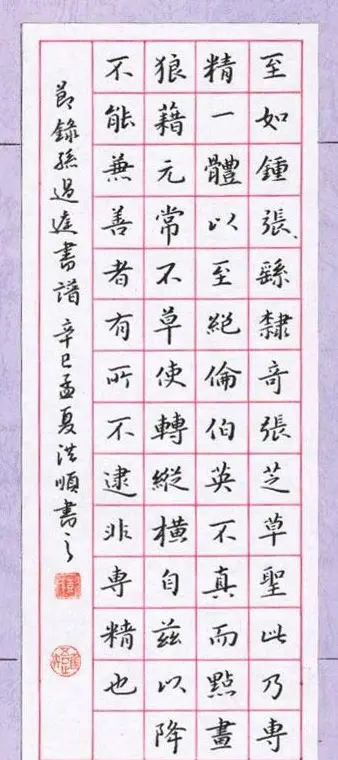 至如鍾張、繇隸奇張芝草聖此乃專
精一體以至絕倫伯英不真而點畫
狼藉元常不草使轉縱橫自茲以降
不能兼善者有所不逮非專精也
節錄孫過庭書譜 辛巳孟夏洪順書之